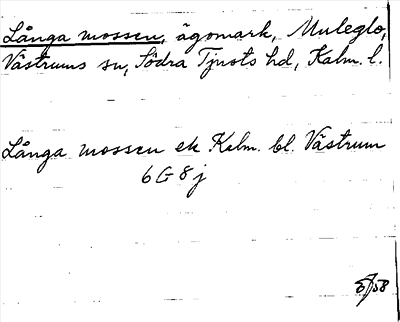 Långa mossen, ägomark, Muleglo,
Västrums sn, Södra Tjusts hd, Kalm. l.
Långa mossen ek Kalm. bl. Västrum
6 G 8 j